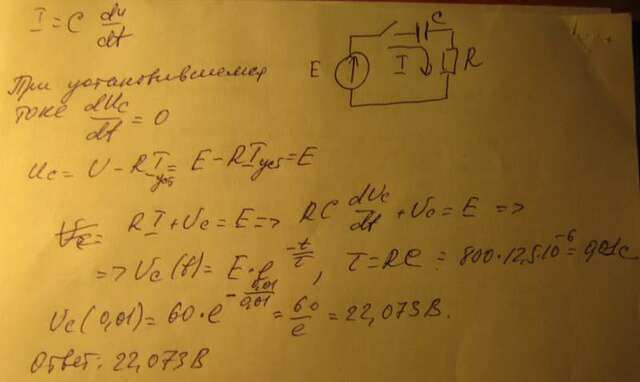 I = C du/dt
C
E
I
R
При установившемся
токе dUc/dt = 0
Uc = U - RIуст = E - RIуст = E
Uc= RI + Uc = E => RC dUc/dt + Uc = E =>
=> Uc(t) = E·e^(-t/τ), τ = RC = 800·12,5·10^-6 = 0,01c
Uc(0,01) = 60·e^(-0,01/0,01) = 60/e = 22,073В.
Ответ: 22,073В